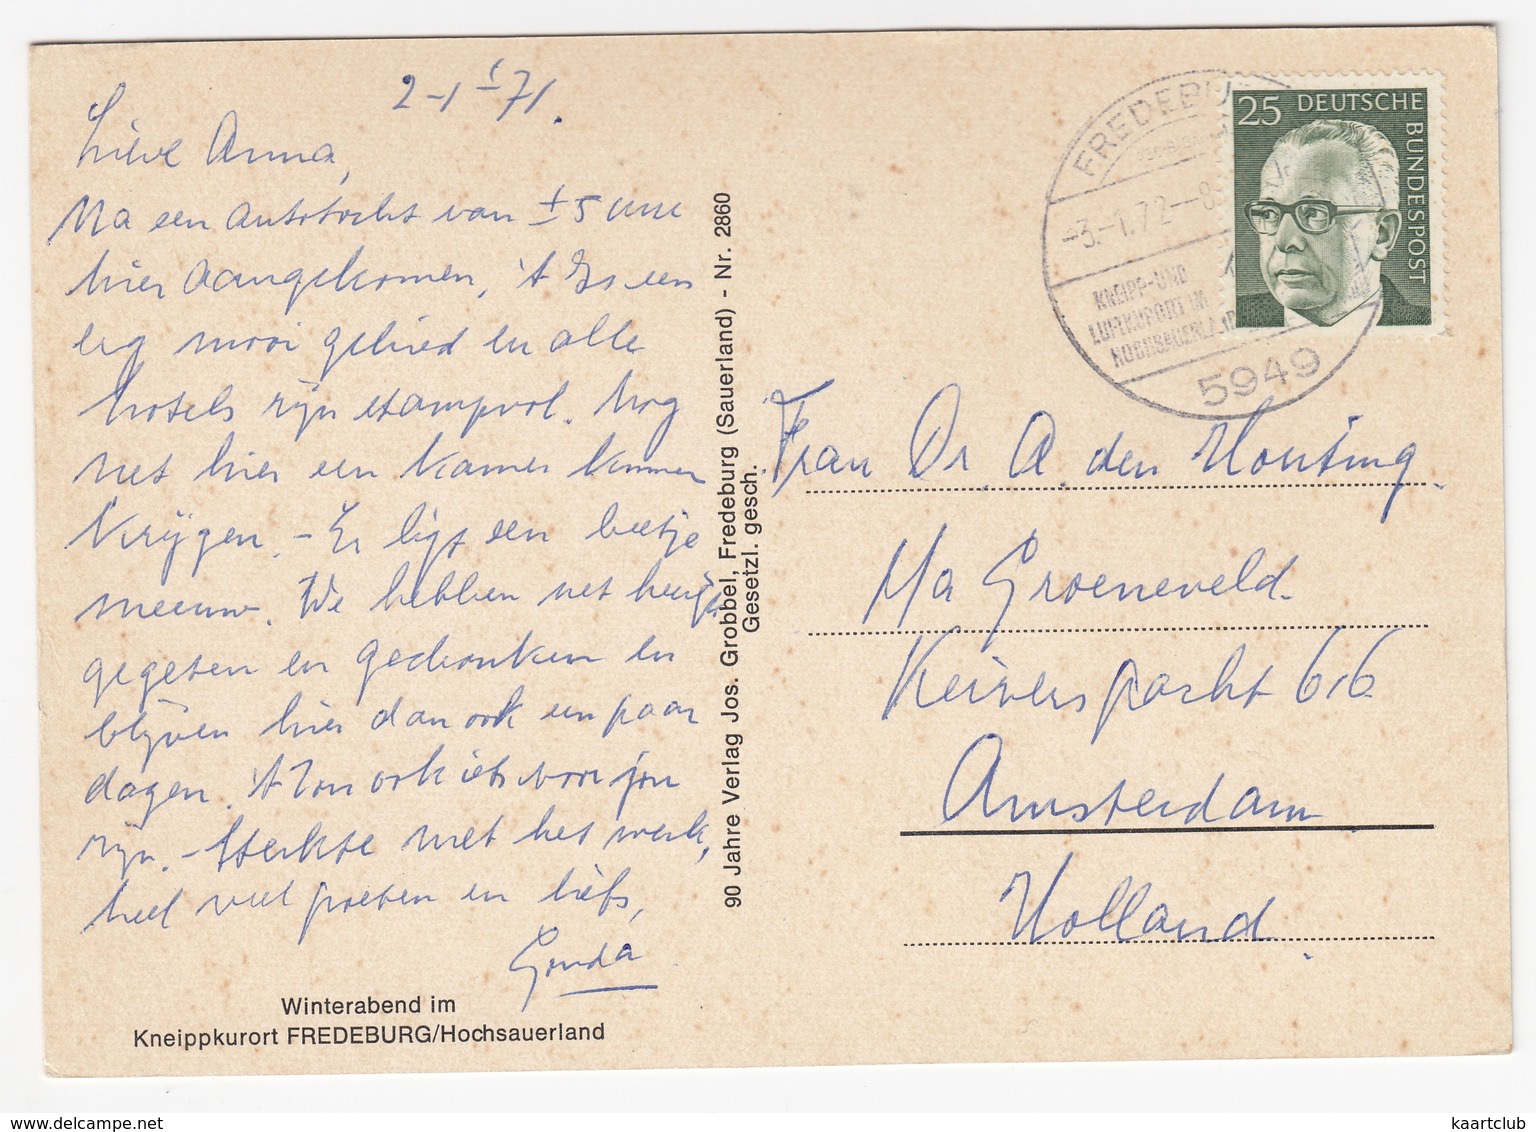 2-1-'71.
Lieve Anna,
Na een autotocht van ± 5 uur
hier aangekomen, 't Is een
erg mooi gebied en alle
hotels zijn stampvol. Nog
net hier een kamer kunnen
krijgen. - Er ligt een beetje
sneeuw. We hebben net heerl.
gegeten en gedronken en
blijven hier dan ook een paar
dagen. 't Zou ook iets voor jou
zijn. - Sterkte met het werk,
heel veel groeten en liefs,
Gonda
Winterabend im
Kneippkurort FREDEBURG/Hochsauerland
90 Jahre Verlag Jos. Grobbel, Fredeburg (Sauerland) - Nr. 2860
Gesetzl. gesch.
FREDEBU
-3.-1.72--8
KNEIPP-UND
LUFTKURORT IM
HOCHSAUERLAND
5949
25 DEUTSCHE
BUNDESPOST
Frau Dr. A. den Houting.
p/a Groeneveld.
Keizersgracht 616
Amsterdam
Holland.
www.delcampe.net
kaartclub